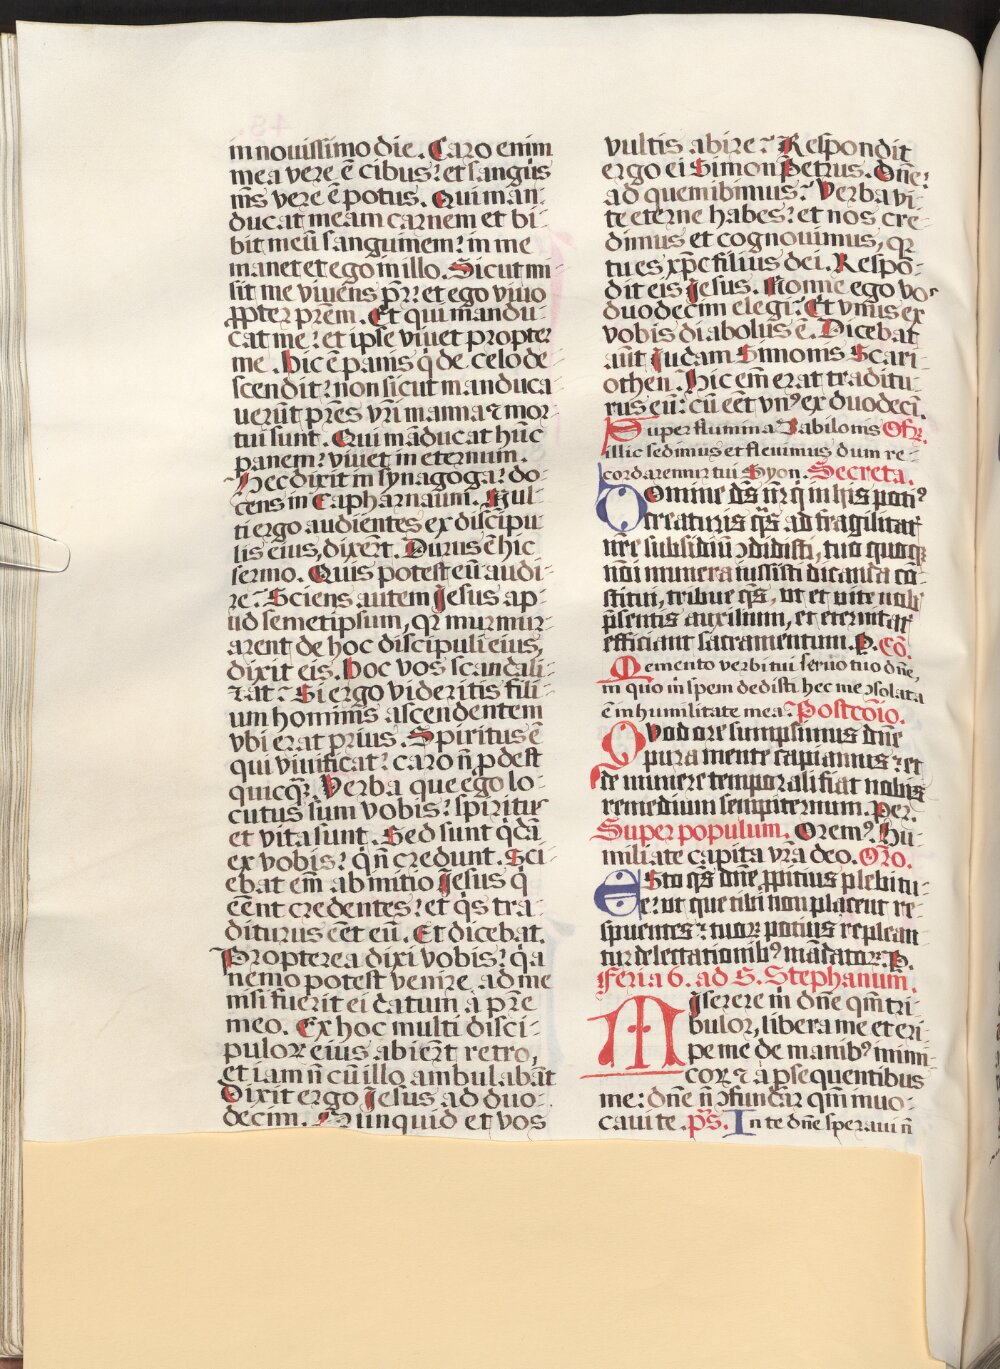 in nouissimo die. Caro enim
mea vere ē cibus: et sanguis
m̄s vere ē potus. Qui man-
ducat meam carnem et bi-
bit meū sanguinem: in me
manet et ego in illo. Sicut mi-
sit me viuens pr̄: et ego viuo
ꝓpter prēm. Et qui mandu-
cat me: et ipse viuet propter
me. Hic ē panis q̇ de celo de-
scendit: non sicut manduca-
uerūt prēs vr̄i manna ⁊ mor-
tui sunt. Qui māducat hūc
panem: viuet in eternum.
Hec dixit in synagoga: do-
cens in Capharnaum. Mul-
ti ergo audientes ex discipu-
lis eius, dixerт̄. Durus ē hic
sermo. Quis potest eū audi-
re? Sciens autem Jesus ap-
ud semetipsum, qꝛ murmur-
arent de hoc discipuli eius,
dixit eis. Hoc vos scandali-
zat? Si ergo videritis fili-
um hominis ascendentem
vbi erat prius. Spiritus ē
qui viuificat: caro n̄ ꝓdest
quicq̄ꝫ. Verba que ego lo-
cutus sum vobis: spiritus
et vita sunt. Sed sunt q̇dā
ex vobis: q̇ n̄ credunt. Sci-
ebat em̄ ab initio Jesus q̇
eēnt credentes: et q̇s tra-
diturus eēt eū. Et dicebat.
Propterea dixi vobis: q̇a
nemo potest venire ad me
nisi fuerit ei datum a prē
meo. Ex hoc multi disci-
puloꝝ eius abierт̄ retro,
et iam n̄ cū illo ambulabāt
Dixit ergo Jesus ad duo-
decim. Nunquid et vos
vultis abire? Respondit
ergo ei Simon Petrus. Dn̄e:
ad quem ibimus? Verba vi-
te eterne habes: et nos cre-
dimus et cognouimus, qꝛ
tu es xp̄e filius dei. Respō-
dit eis Jesus. Nonne ego vos
duodecim elegi: Et vnus ex
vobis diabolus ē. Dicebat
aūt Judam Simonis Scari-
othen. Hic em̄ erat traditu-
rus eū: cū eēt vnꝰ ex duodecī.
Super flumina Babilonis Ofr̄.
illic sedimus et fleuimus dum re-
cordaremur tui Syon. Secreta.
Domine ds̄ nr̄ q̇ in his potiꝰ
creaturis q̄s ad fragilitat
nr̄e subsidiū ↄdidisti, tuo quoqꝫ
nōi munera iussisti dicanda cō-
stitui, tribue q̄s, ut et vite nobis
p̄sentis auxilium, et eternitat
efficiant sacramentum. P. Cō.
Memento verbi tui seruo tuo dn̄e,
in quo m̄ spem dedisti hec me ↄsolata
ē in humilitate mea. Postcōio.
Quod ore sumpsimus dn̄e
pura mente capiamus: et
de munere temporali fiat nobis
remedium sempiternum. Per.
Super populum. Oremꝰ. Hu-
miliate capita vr̄a deo. Or̄o.
Esto q̄s dn̄e ꝓpitius plebi tu-
e: ut que tibi non placent re-
spuentes: tuoꝝ potius replean-
tur delectationibꝰ mādatoꝝ. P.
Feria 6. ad S. Stephanum.
Miserere m̄ dn̄e qm̄ tri-
bulor, libera me et eri-
pe me de manibꝰ inimi-
coꝝ ⁊ a ꝑsequentibus
me: dn̄e n̄ ↄfundar qm̄ inuo-
caui te. ps̄. In te dn̄e speraui n̄